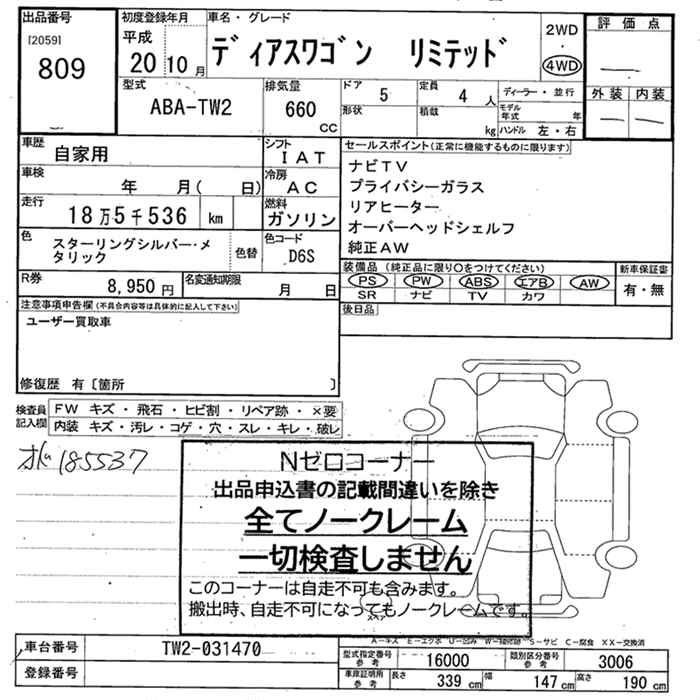 出品番号
[2059]
809
初度登録年月
平成
20 10 月
車名・グレード
ディアスワゴン リミテッド
2WD
・
4WD
評価点
―
外装 内装
― ―
型式
ABA-TW2
排気量
660
cc
ドア 5
形状
定員 4 人
積載 kg
ディーラー・並行
モデル年式 年
ハンドル 左・右
車歴
自家用
シフト
IAT
車検
年 月( 日)
冷房
AC
走行
18万5千536 km
燃料
ガソリン
色
スターリングシルバー・メ
タリック
色替
色コード
D6S
R券
8,950円
名変通知期限
月 日
セールスポイント(正常に機能するものに限ります)
ナビTV
プライバシーガラス
リアヒーター
オーバーヘッドシェルフ
純正AW
装備品(純正品に限り○をつけてください)
PS PW ABS エアB AW
SR ナビ TV カワ
新車保証書
有・無
後日品
注意事項申告欄(不具合内容等は具体的に記入して下さい)
ユーザー買取車
修復歴 有〔箇所 〕
検査員
記入欄
FW キズ・飛石・ヒビ割・リペア跡・×要
内装 キズ・汚レ・コゲ・穴・スレ・キレ・破レ
185537
Nゼロコーナー
出品申込書の記載間違いを除き
全てノークレーム
一切検査しません
このコーナーは自走不可も含みます。
搬出時、自走不可になってもノークレームです。
A-キズ E-エクボ U-凹み W-補修跡 S-サビ C-腐食 XX-交換済
車台番号
TW2-031470
登録番号
型式指定番号
参考
16000
類別区分番号
参考
3006
車庫証明用
参考
長さ 339 cm
幅 147 cm
高さ 190 cm